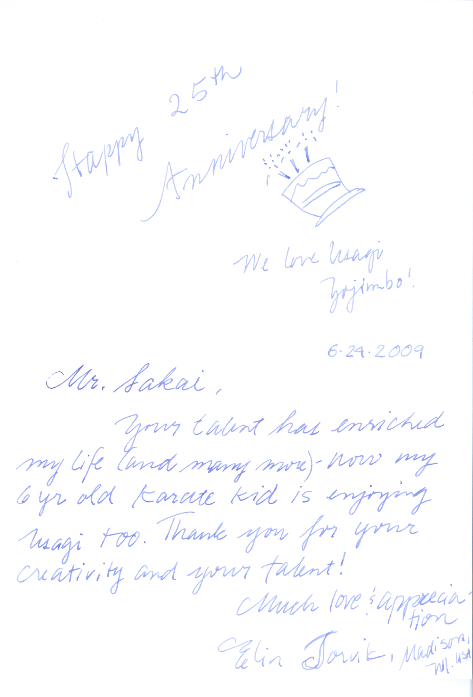 Happy 25th
Anniversary!
We love Usagi
Yojimbo!
6-24-2009
Mr. Sakai,
Your talent has enriched
my life (and many more)- now my
6 yr old Karate Kid is enjoying
Usagi too. Thank you for your
creativity and your talent!
Much love & apprecia-
tion
Elin Torvik, Madison,
WI. USA